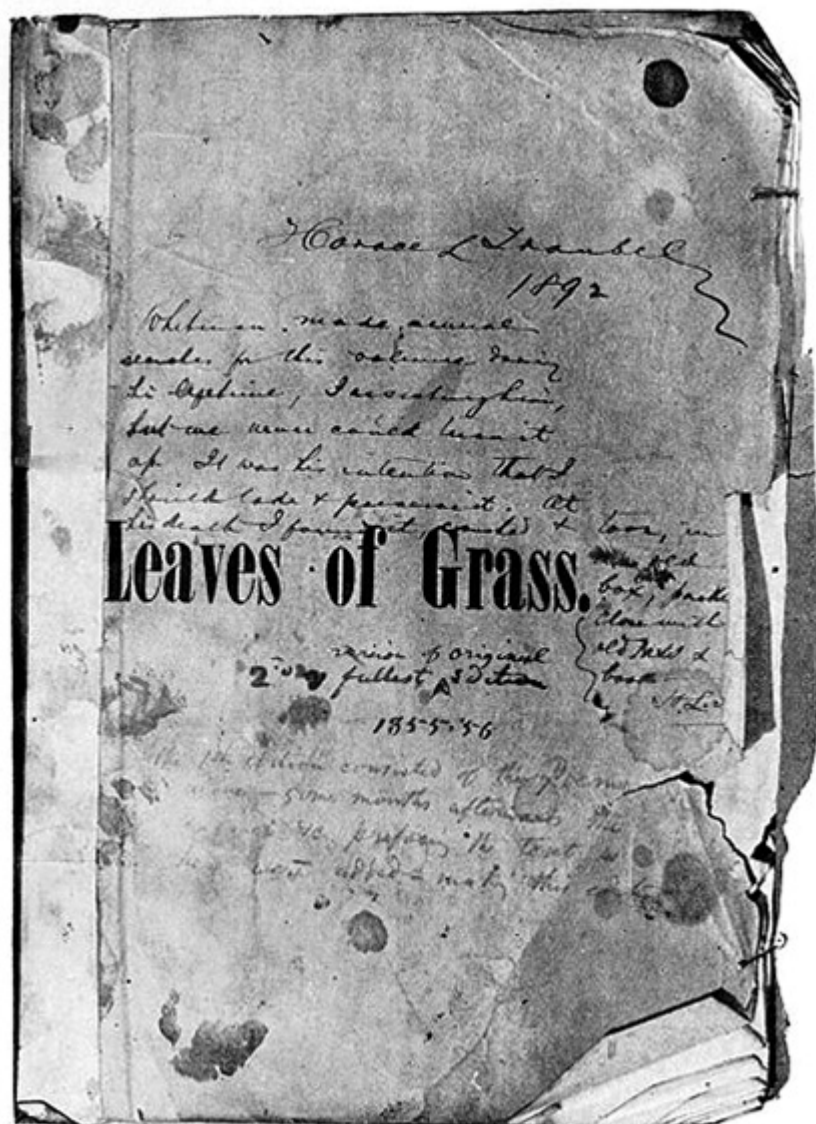 Horace L Traubel
1892
Whitman made several
searches for this volume during
his lifetime, I assisting him,
but we never could turn it
up. It was his intention that I
should take & preserve it. At
his death I found it, soiled & torn, in
an old
box, packed
close with
old MSS &
books
H.L.T.
Leaves of Grass.
version of original
2d fullest Edition
1855-'56
the 1st edition consisted of the poems
alone — some months afterwards the
prefacing the text
added making this